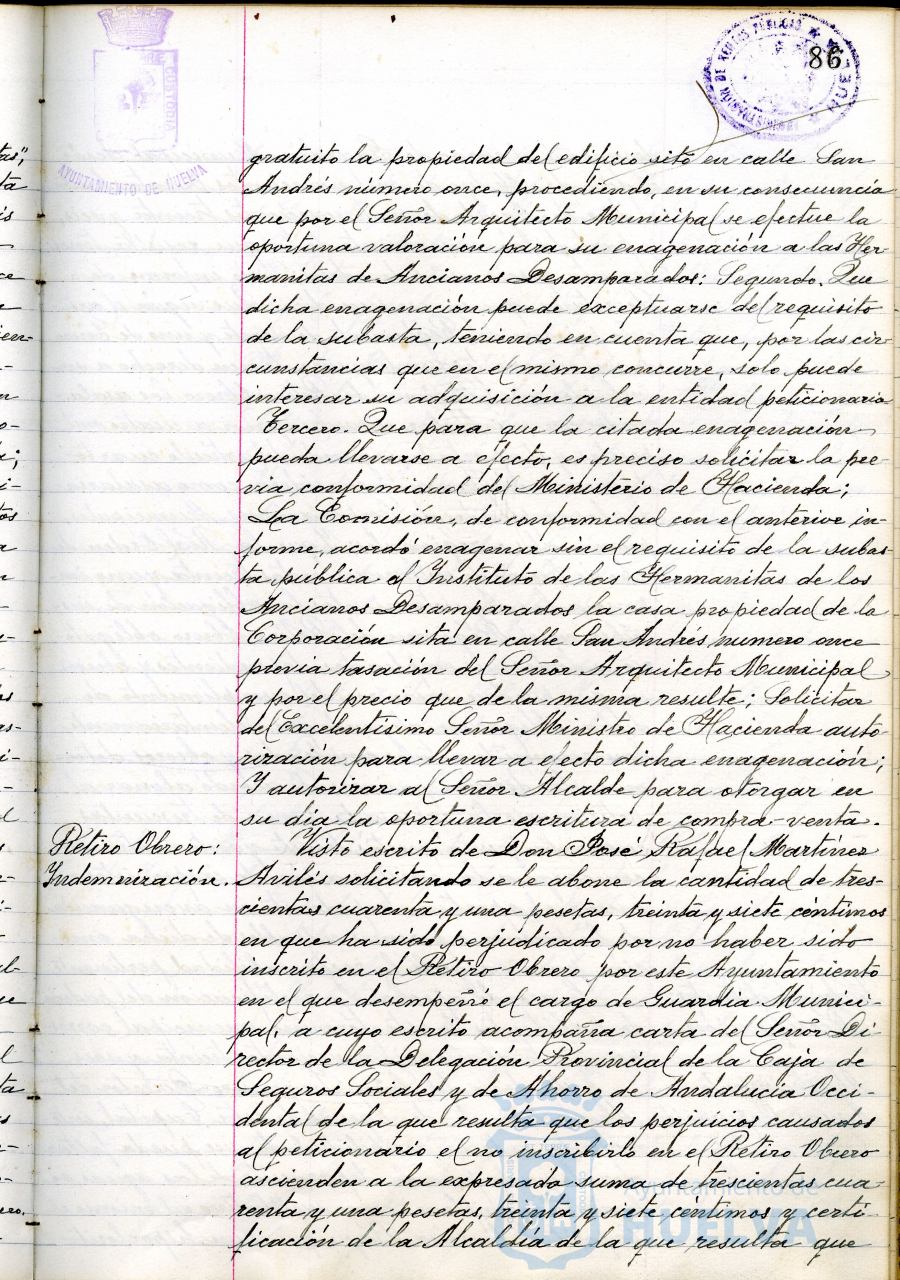 86
AYUNTAMIENTO DE HUELVA
CUSTODIA
gratuito la propiedad del edificio sito en calle San
Andrés número once, procediendo, en su consecuencia
que por el Señor Arquitecto Municipal se efectue la
oportuna valoración para su enagenación a las Her-
manitas de Ancianos Desamparados: Segundo. Que
dicha enagenación puede exceptuarse del requisito
de la subasta, teniendo en cuenta que, por las cir-
cunstancias que en el mismo concurre, solo puede
interesar su adquisición a la entidad peticionaria
Tercero. Que para que la citada enagenación
pueda llevarse a efecto, es preciso solicitar la pre-
via conformidad del Ministerio de Hacienda;
La Comisión, de conformidad con el anterior in-
forme, acordó enagenar sin el requisito de la subas-
ta pública al Instituto de las Hermanitas de los
Ancianos Desamparados la casa propiedad de la
Corporación sita en calle San Andrés, numero once
previa tasación del Señor Arquitecto Municipal
y por el precio que de la misma resulte; Solicitar
del Excelentísimo Señor Ministro de Hacienda auto-
rización para llevar a efecto dicha enagenación;
Y autorizar al Señor Alcalde para otorgar en
su día la oportuna escritura de compra-venta.
Retiro Obrero:
Indemnización.
Visto escrito de Don José Rafael Martínez
Avilés solicitando se le abone la cantidad de tres-
cientas cuarenta y una pesetas, treinta y siete céntimos
en que ha sido perjudicado por no haber sido
inscrito en el Retiro Obrero por este Ayuntamiento
en el que desempeñó el cargo de Guardia Munici-
pal, a cuyo escrito acompaña carta del Señor Di-
rector de la Delegación Provincial de la Caja de
Seguros Sociales y de Ahorro de Andalucía Occi-
dental de la que resulta que los perjuicios causados
al peticionario el no inscribirlo en el Retiro Obrero
ascienden a la expresada suma de trescientas cua-
renta y una pesetas, treinta y siete centimos y certi-
ficación de la Alcaldía de la que resulta que
Ayuntamiento de
HUELVA